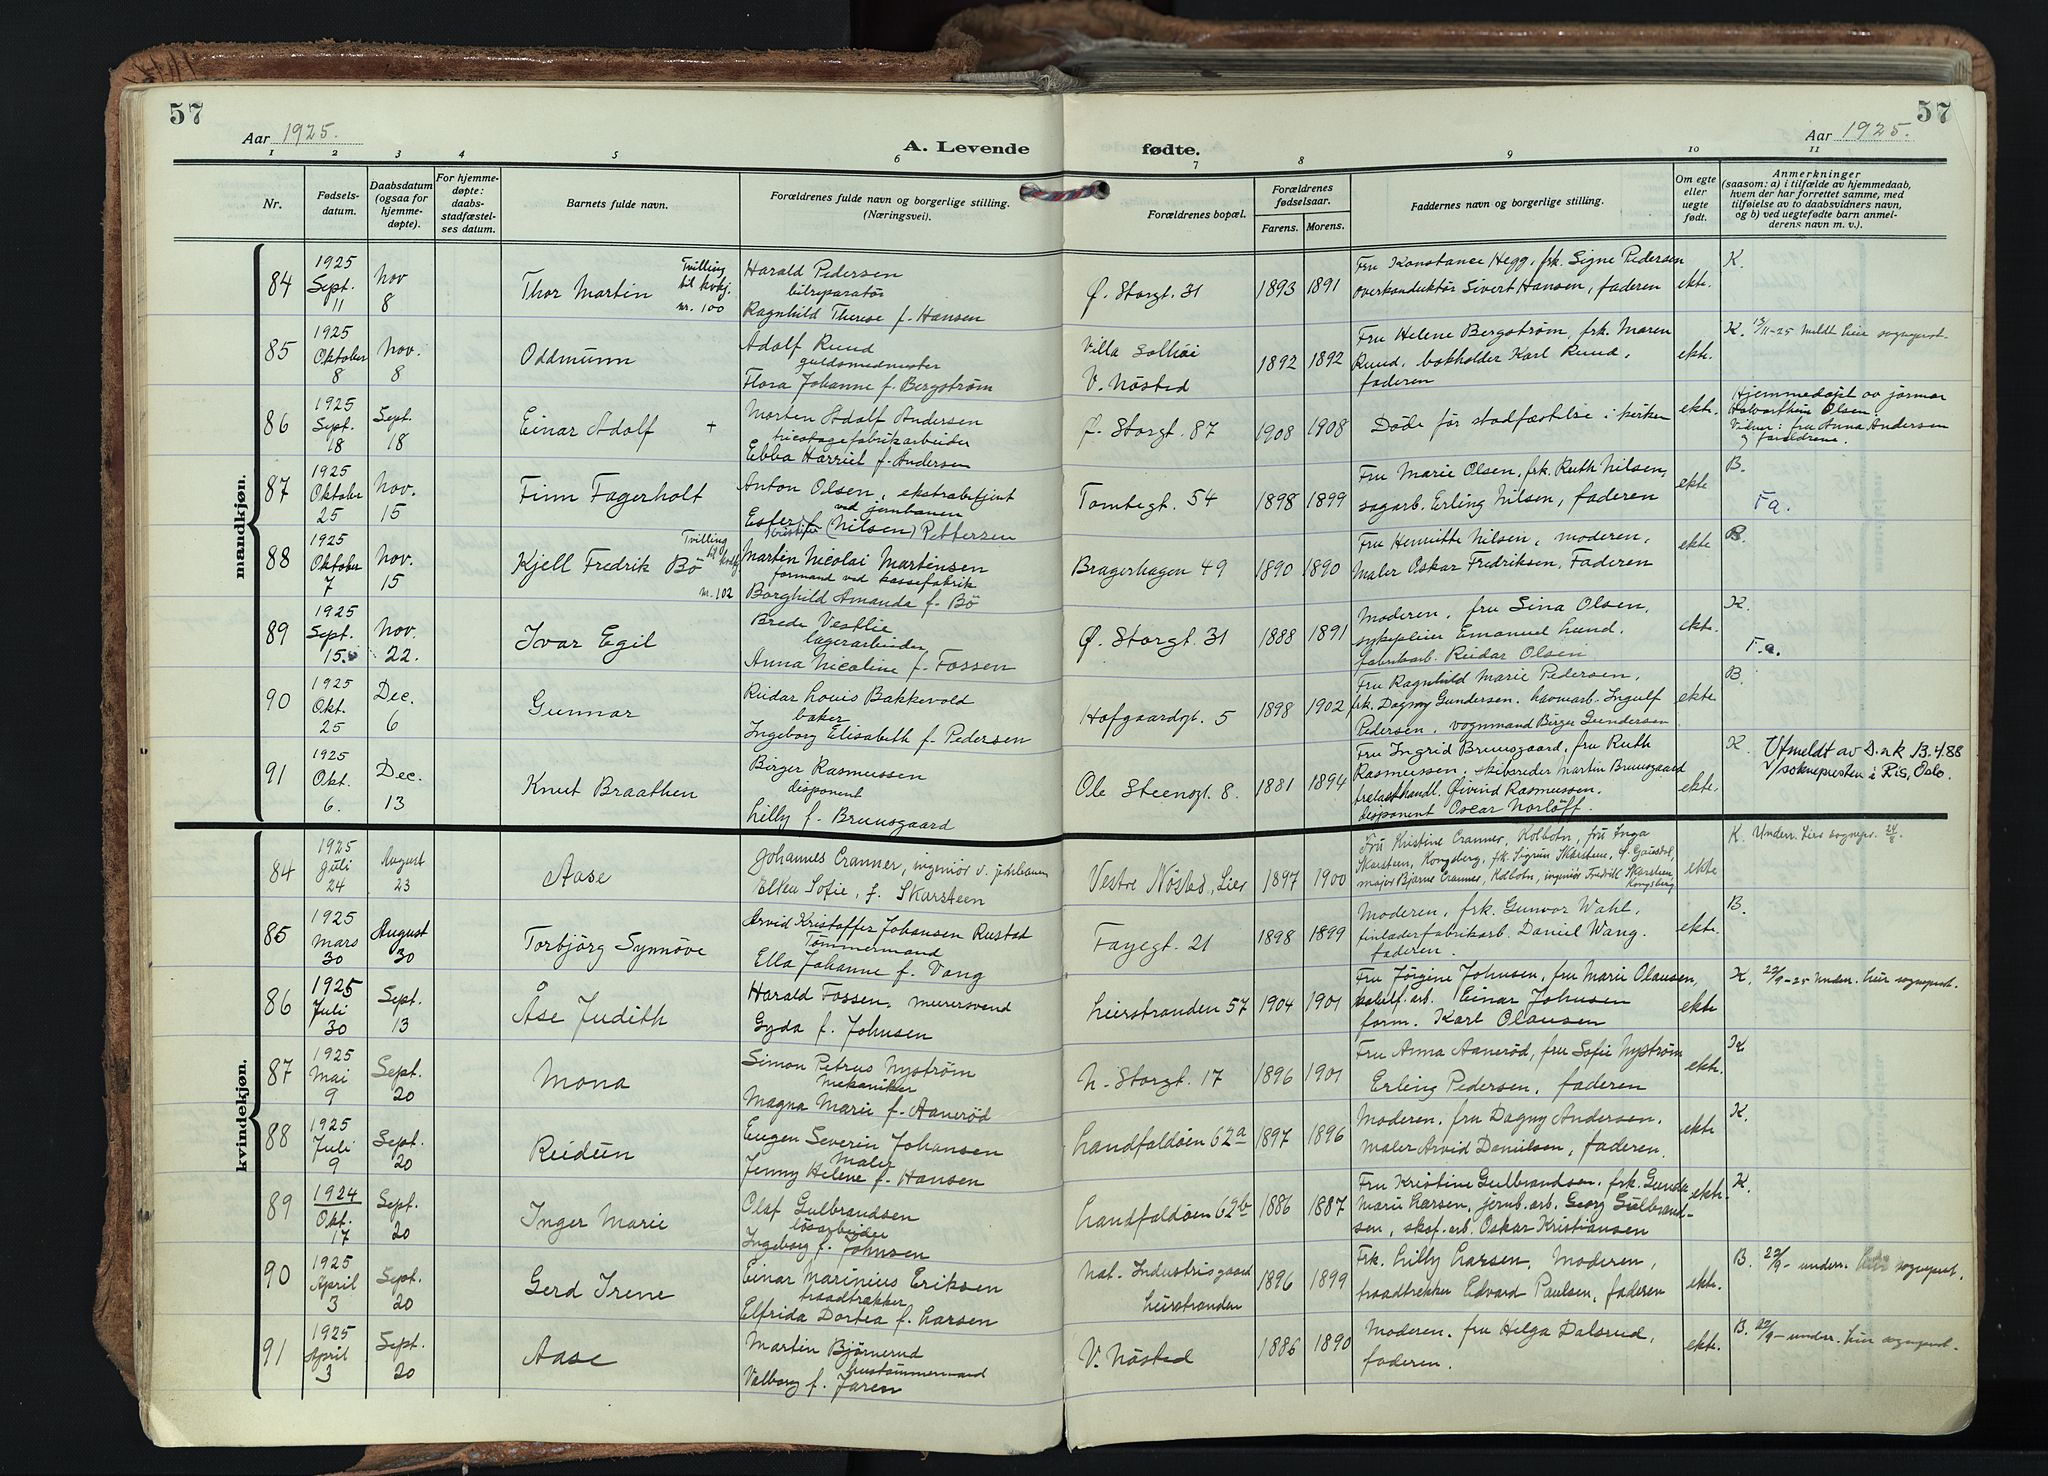 57
57
Aar 1925.
Aar 1925.
A. Levende fødte.
1 2 3 4 5 6 7 8 9 10 11
Nr.
Fødsels-
datum.
Daabsdatum
(ogsaa for
hjemme-
døpte).
For hjemme-
døpte:
daabs-
stadfæstel-
ses datum.
Barnets fulde navn.
Forældrenes fulde navn og borgerlige stilling.
(Næringsvei).
Forældrenes bopæl.
Forældrenes
fødselsaar.
Farens. Morens.
Faddernes navn og borgerlige stilling.
Om egte
eller
uegte
født.
Anmerkninger
(saasom: a) i tilfælde av hjemmedaab,
hvem der har forrettet samme, med
tilføielse av to daabsvidners navn,
og b) ved uegtefødte barn anmel-
derens navn m. v.).
mandkjøn.
84
1925
Sept.
11
Nov
8
Thor Martin
Tvilling
til kvkj.
nr. 100
Harald Pedersen
bilreparatør
Ragnhild Therese f. Hansen
Ø. Storgt. 31
1893 1891
Fru Konstance Hegg, frk. Signe Pedersen
overkonduktør Sivert Hansen, faderen
ekte.
K.
85
1925
Oktober
8
Nov.
8
Oddmunn
Adolf Ruud
guldsmedmester
Flora Johanne f. Bergstrøm
Villa Solhøi
V. Nøsted
1892 1892
Fru Helene Bergstrøm, frk. Maren
Ruud, bokholder Karl Ruud,
faderen
ekte.
K. 13/11-25 meldt Lier sogneprest.
86
1925
Sept.
18
Sept.
18
Einar Adolf +
Morten Adolf Andersen
tricotagefabrikarbeider
Ebba Harriet f. Andersen
Ø. Storgt. 87
1908 1908
Døde før stadfæstelse i kirken
ekte.
Hjemmedøpt av jormor
Olsen.
Vidner: fru Anna Andersen
og forældrene.
87
1925
Oktober
25
Nov.
15
Finn Fagerholt
Anton Olsen, ekstrabetjent
ved jernbanen
Ester f. (Nilsen) Pettersen
Tomtegt. 54
1898 1899
Fru Marie Olsen, frk. Ruth Nilsen,
sagarb. Erling Nilsen, faderen
ekte
B.
Fa.
88
1925
Oktober
7
Nov.
15
Kjell Fredrik Bö
Tvilling
til kvkj
nr. 102
Martin Nicolai Martinsen
formand ved kassefabrik
Borghild Amanda f. Bö
Bragerhagen 49
1890 1890
Fru Henriette Nilsen, moderen,
maler Oskar Fredriksen, Faderen
ekte
B.
89
1925
Sept.
15.
Nov.
22.
Ivar Egil
Brede Vestlie
lagerarbeider
Anna Nicoline f. Fossen
Ø. Storgt. 31
1888 1891
Moderen, fru Lina Olsen,
sykepleier Emanuel Lund.
fabrikarb. Reidar Olsen
ekte.
K.
F.a.
90
1925
Okt.
25
Dec.
6
Gunnar
Reidar Louis Bakkevold
baker
Ingeborg Elisabeth f. Pedersen
Hofgaardgt. 5
1898 1902
Fru Ragnhild Marie Pedersen,
frk. Dagny Gundersen. havnearb. Ingulf
Pedersen, vognmand Birger Gundersen
ekte
B.
91
1925
Okt.
6.
Dec.
13
Knut Braathen
Birger Rasmussen
disponent
Lilly f. Bruusgaard
Ole Steensgt. 8.
1881 1894
Fru Ingrid Bruusgaard, fru Ruth
Rasmussen, skibsreder Martin Bruusgaard
trelasthandl. Øivind Rasmussen.
disponent Oscar Norløff.
ekte.
K. Utmeldt av D.n.k 13.4.88
v/soknepresten i Ris, Oslo.
kvindekjøn.
84
1925
Juli
24
August
23
Aase
Johannes Cranner, ingeniør v. jernbanen
Elken Sofie, f. Skarsteen
Vestre Nøsted, Lier
1897 1900
Fru Kristine Cranner, Kolbotn, fru Inga
Skarsteen, Kongsberg, frk. Sigrun Skarsteen, Ø. Gausdal,
major Bjarne Cranner, Kolbotn, ingeniør Fredrik Skarsteen,
Kongsberg
ekte
K. Underr. Liers sognepr. 24/8.
85
1925
Mars
30
August
30
Torbjörg Synnöve
Arvid Kristoffer Johansen Rustad
Tømmermand
Ella Johanne f. Vang
Fayegt. 21
1898 1899
Moderen, frk. Gunvor Wahl,
finladerfabrikarb. Daniel Wang.
faderen.
ekte.
B.
86
1925
Juli
30
Sept.
13
Åse Judith
Harald Fossen, murersvend
Gyda f. Johnsen
Lierstranden 57
1904 1901
Fru Jørgine Johnsen, fru Marie Olausen,
arb. Einar Johnsen
form. Karl Olausen
ekte
K. 22/9-25 underr. Lier sogneprst.
87
1925
Mai
9
Sept.
20
Mona
Simon Petrus Nyström
Mekaniker
Magna Marie f. Aanerød
N. Storgt. 17
1896 1901
Fru Anna Aanerød, fru Sofie Nyström
Erling Pedersen, faderen
ekte.
K
88
1925
Juli
9
Sept.
20
Reidun
Eugen Severin Johansen
Maler
Jenny Helene f. Hansen
Landfaldøen 62a
1897 1896
Moderen, fru Dagny Andersen,
maler Arvid Danielsen, faderen.
ekte
K.
89
1924
Okt.
17
Sept.
20
Inger Marie
Olaf Gulbrandsen
løsarbeider
Ingeborg f. Johnsen
Landfaldøen 62b
1886 1887
Fru Kristine Gulbrandsen, frk. Gunda
Marie Larsen, jernb.arb. Georg Gulbrand-
sen, skof.arb. Oskar Kristiansen
ekte.
K.
90
1925
April
3
Sept.
20
Gerd Irene
Einar Marinius Eriksen
traadtrækker
Elfrida Dortea f. Larsen
Nat. Industrisgaard
Lierstranden
1896 1899
Frk. Lilly Larsen, Moderen,
traadtrekker Edvard Paulsen, faderen
ekte.
B. 22/9- underr. Lier sogneprst.
91
1925
April
3
Sept.
20
Aase
Martin Bjørnerud
hustømmermand
Valborg f. Jaren
V. Nøsted
1886 1890
Moderen, fru Helga Dalsrud,
faderen.
ekte.
B. 22/9-underr. Lier sogneprst.